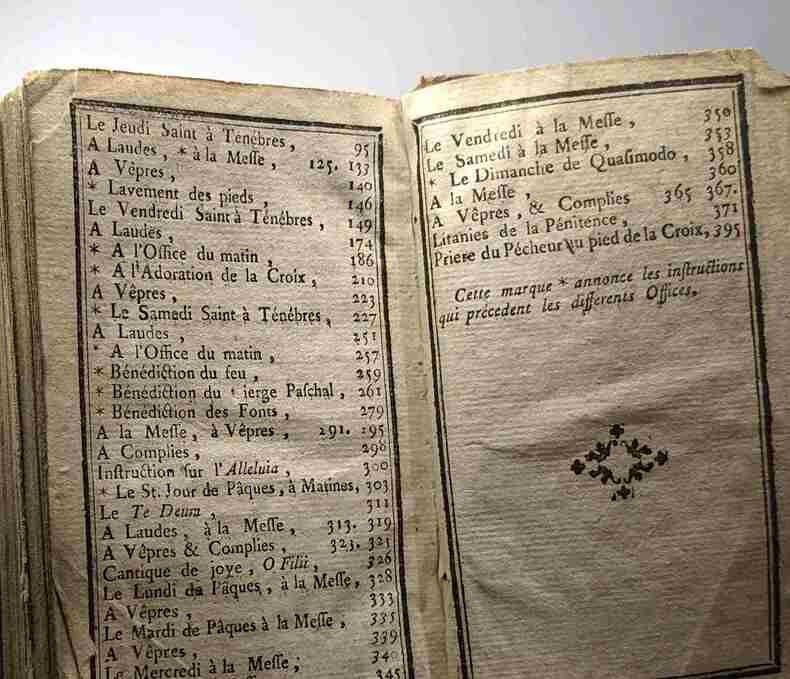 Le Jeudi Saint à Ténèbres, 95
A Laudes, * à la Messe, 125. 133
A Vêpres, 140
* Lavement des pieds, 146
Le Vendredi Saint à Ténébres, 149
A Laudes, 174
* A l'Office du matin, 186
* A l'Adoration de la Croix, 210
A Vêpres, 223
* Le Samedi Saint à Ténébres, 227
A Laudes, 251
* A l'Office du matin, 257
* Bénédiction du feu, 259
* Bénédiction du ierge Paschal, 261
* Bénédiction des Fonts, 279
A la Messe, à Vêpres, 291. 295
A Complies, 298
Instruction sur l'Alleluia, 300
* Le St. Jour de Pâques, à Matines, 303
Le Te Deum, 311
A Laudes, à la Messe, 313. 319
A Vêpres & Complies, 323. 325
Cantique de joye, O Filii, 326
Le Lundi de Pâques, à la Messe, 328
A Vêpres, 333
Le Mardi de Pâques à la Messe, 335
A Vêpres, 339
Le Mercredi à la Messe; 340
345
Le Vendredi à la Messe, 350
Le Samedi à la Messe, 353
* Le Dimanche de Quasimodo, 358
A la Messe, 360
A Vêpres, & Complies 365 367.
Litanies de la Pénitence, 371
Priere du Pécheur au pied de la Croix, 395
Cette marque * annonce les instructions
qui précedent les differents Offices.